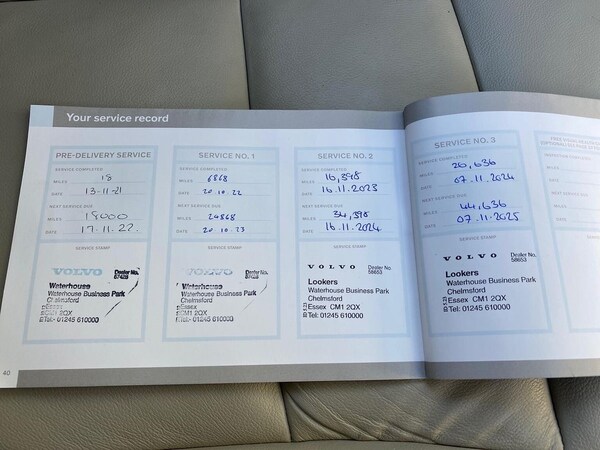 Your service record
PRE-DELIVERY SERVICE
SERVICE COMPLETED
MILES 15
DATE 13-11-21
NEXT SERVICE DUE
MILES 18000
DATE 17-11-22.
SERVICE STAMP
VOLVO Dealer No.
Waterhouse
Waterhouse Business Park
Chelmsford
Essex
CM1 2QX
Tel:- 01245 610000
SERVICE NO. 1
SERVICE COMPLETED
MILES 6868
DATE 20.10.22
NEXT SERVICE DUE
MILES 24868
DATE 20.10.23
SERVICE STAMP
VOLVO Dealer No.
Waterhouse
Waterhouse Business Park
Chelmsford
Essex
CM1 2QX
Tel:- 01245 610000
SERVICE NO. 2
SERVICE COMPLETED
MILES 16,398
DATE 16.11.2023
NEXT SERVICE DUE
MILES 34,398
DATE 16.11.2024
SERVICE STAMP
VOLVO Dealer No.
58653
Lookers
Waterhouse Business Park
Chelmsford
Essex CM1 2QX
Tel: 01245 610000
SERVICE NO. 3
SERVICE COMPLETED
MILES 26,636
DATE 07.11.2024
NEXT SERVICE DUE
MILES 44,636
DATE 07.11.2025
SERVICE STAMP
VOLVO Dealer No.
58653
Lookers
Waterhouse Business Park
Chelmsford
Essex CM1 2QX
Tel: 01245 610000
40